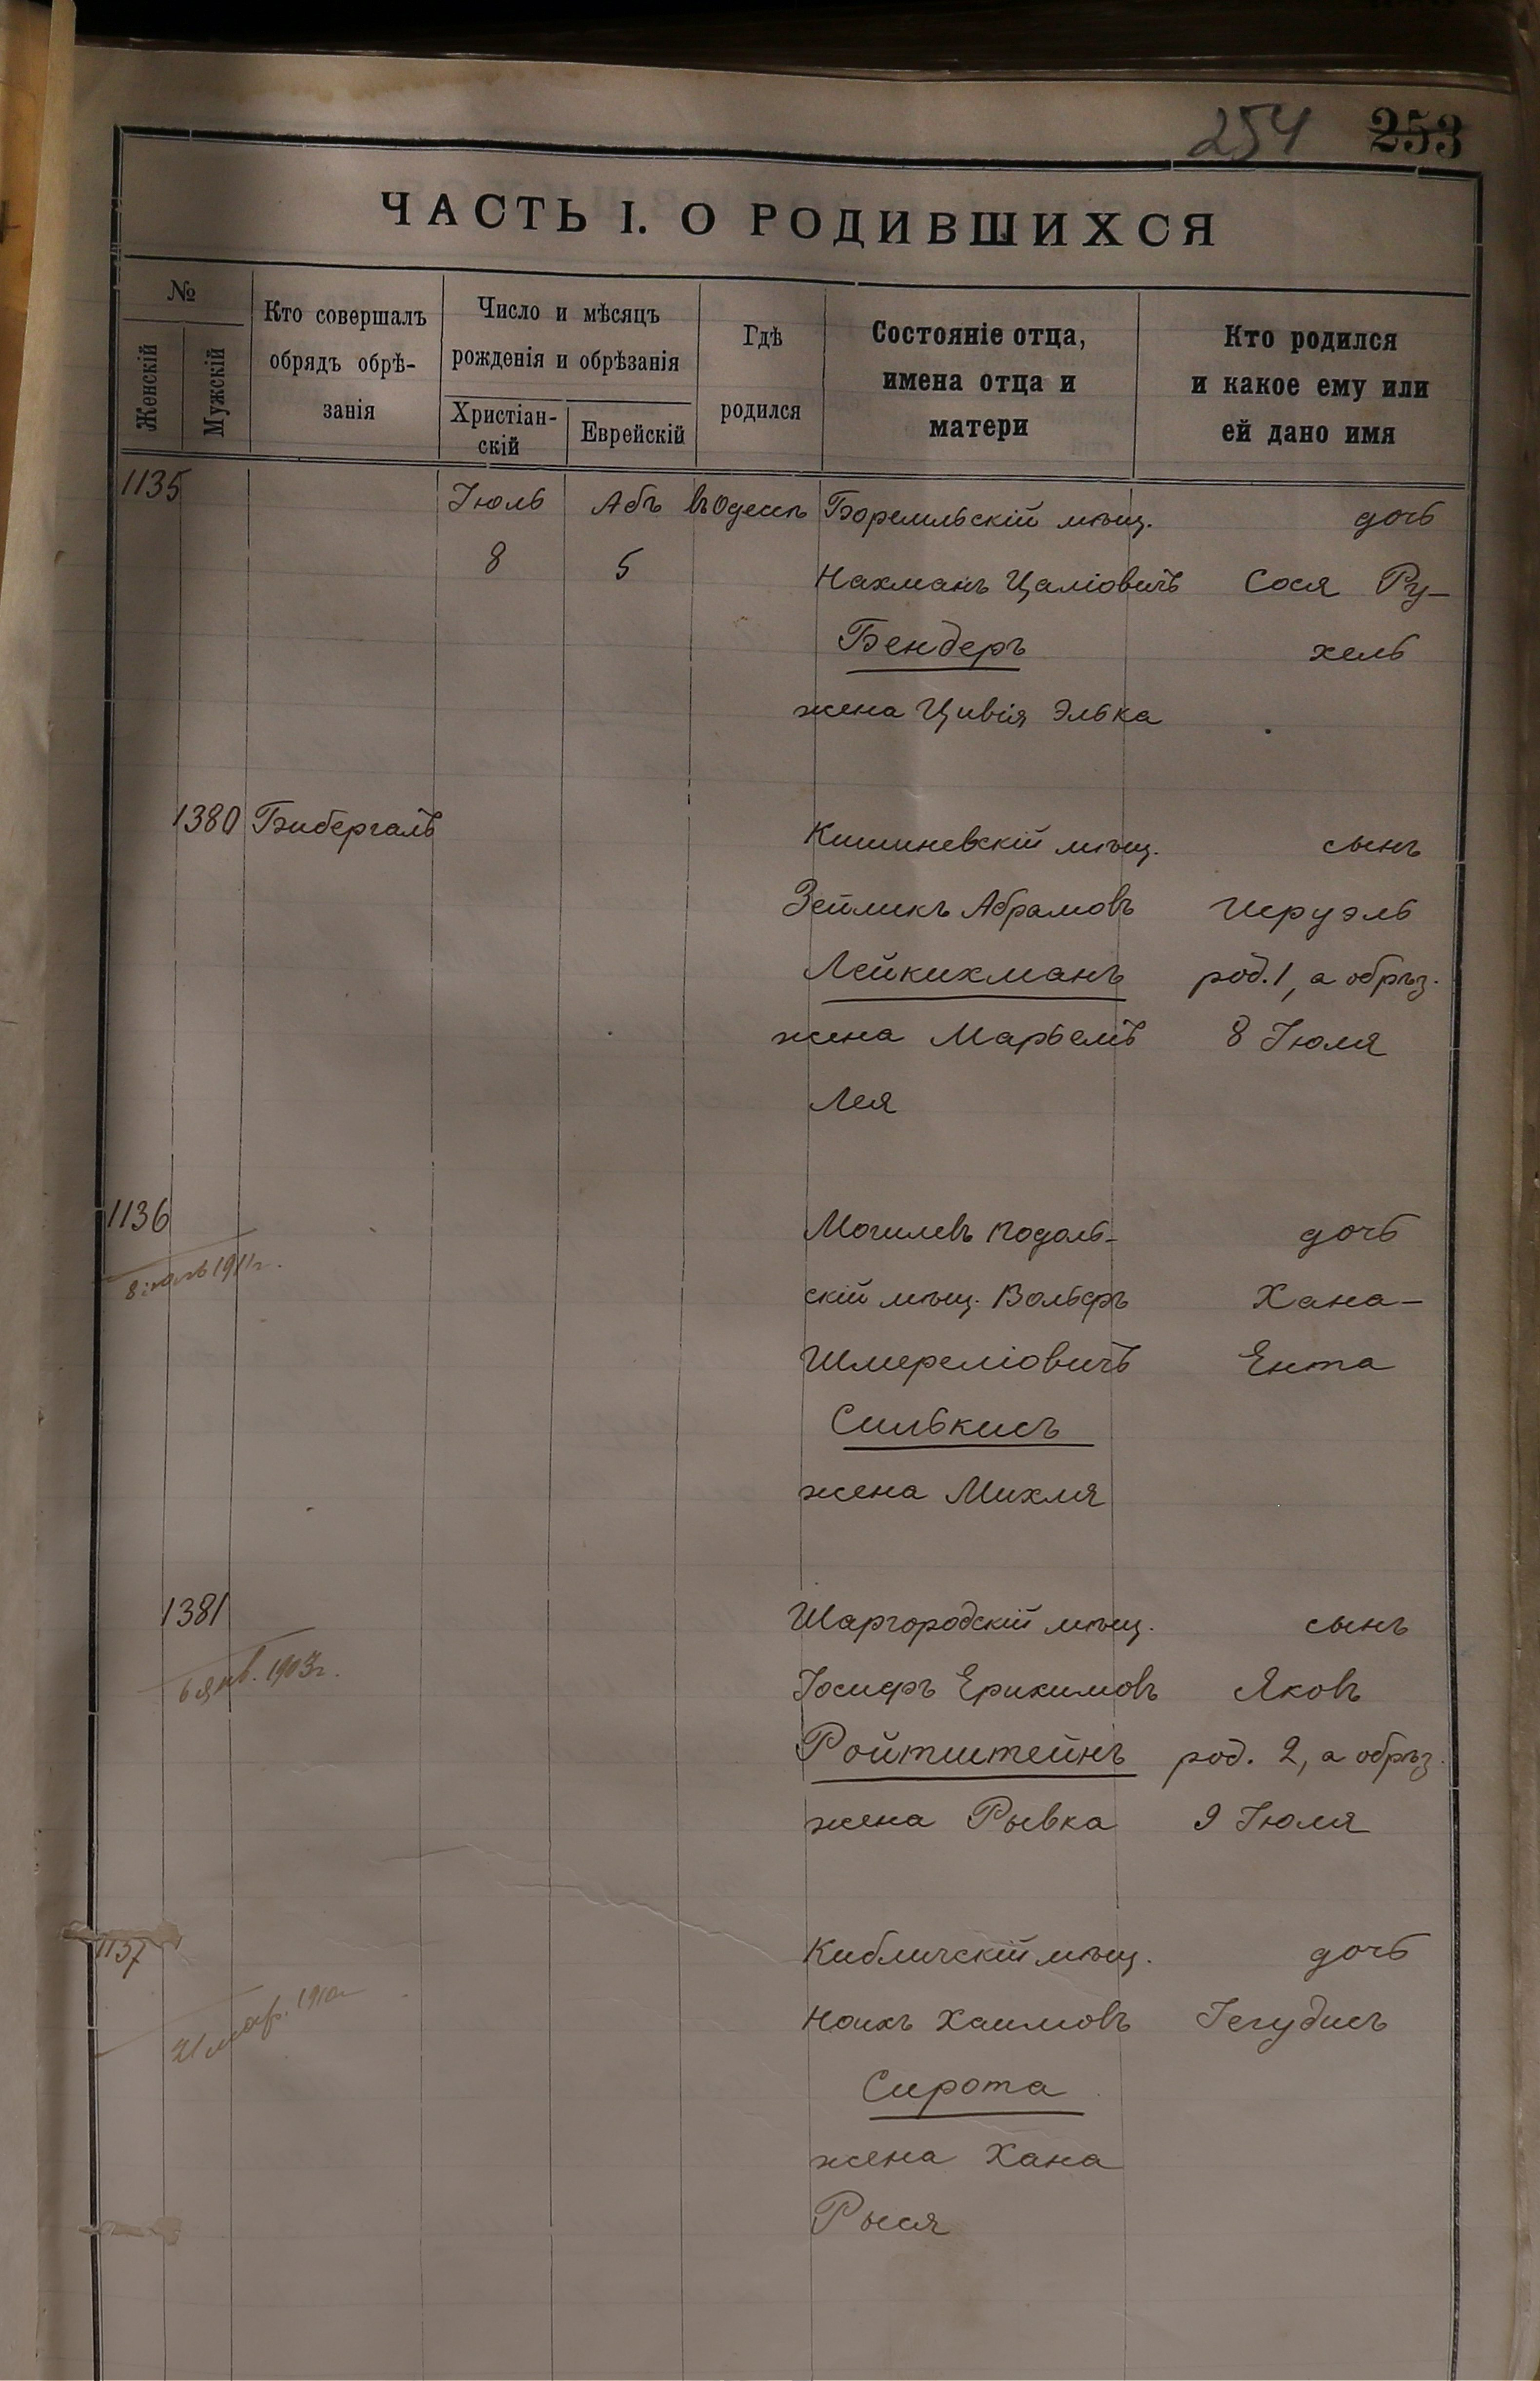 254 253
ЧАСТЬ I. О РОДИВШИХСЯ
№
Женскій
Мужскій
Кто совершалъ
обрядъ обрѣ-
занія
Число и мѣсяцъ
рожденія и обрѣзанія
Христіан-
скій
Еврейскій
Гдѣ
родился
Состояніе отца,
имена отца и
матери
Кто родился
и какое ему или
ей дано имя
1135 Іюль Абъ въ Одессѣ Боремльскій мѣщ. дочь
8 5 Нахманъ Цаліовичъ Сося Ру-
Бендеръ хель
жена Цивія Элька
1380 Бибергалъ Кишиневскій мѣщ. сынъ
Зейликъ Абрамовъ Исруэль
Лейкихманъ род. 1, а обрѣз.
жена Марьемъ 8 Іюля
Лея
1136 Могилевъ Подоль- дочь
8 1911г.
скій мѣщ. Вольфъ Хана-
Шмереліовичъ Ента
Силькисъ
жена Михля
1381 Шаргородскій мѣщ. сынъ
6 янв. 1903г.
Іосифъ Ерихимовъ Яковъ
Ройтштейнъ род. 2, а обрѣз.
жена Рывка 9 Іюля
1137 Кибличскій мѣщ. дочь
21 мар. 1910г
Ноихъ Хаимовъ Іегудисъ
Сирота
жена Хана
Рыся